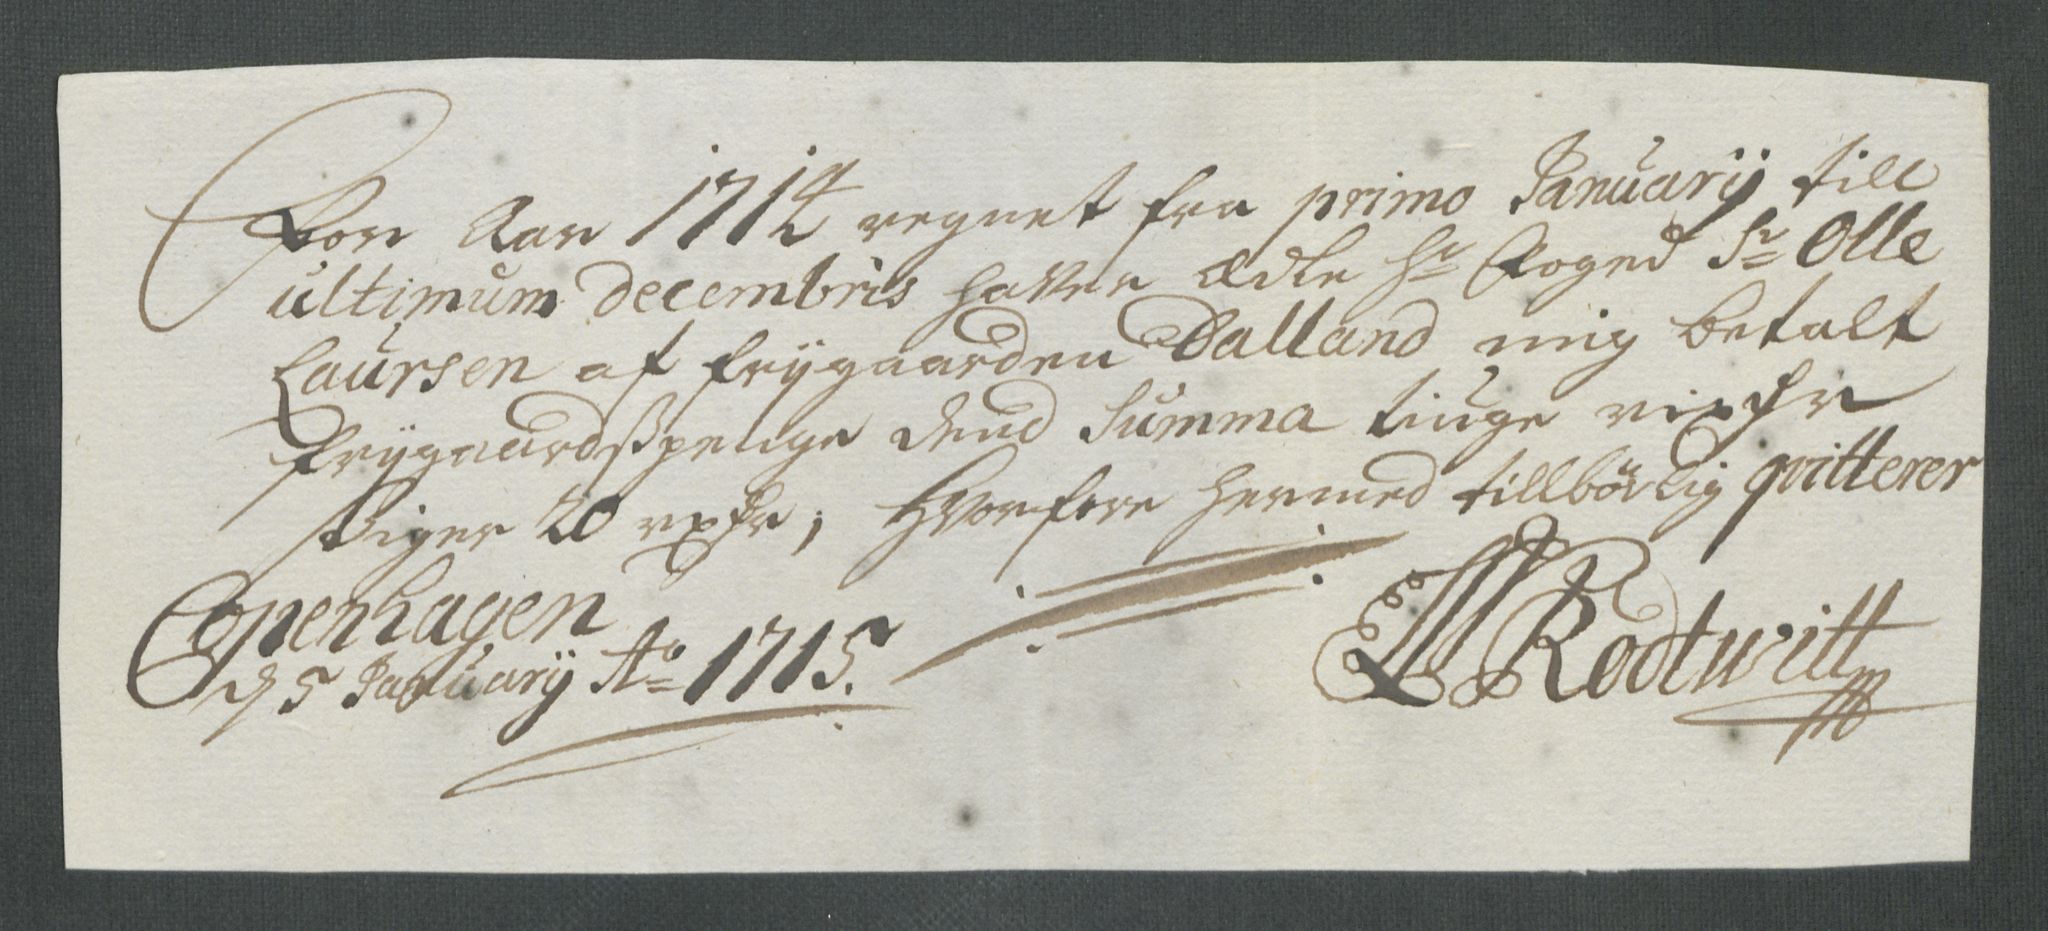 For Aar 1714 regnet fra primo Januarij till
ultimum decembris haver Ædle Hr Foged Sr Olle
Laursen af frÿgaarden Dalland mig betalt
frÿgaardsspenge dend Summa tiuge rixdr
siger 20 rixdr; Hvorfore hermed tillbörlig qvitterer
Copenhagen
d 5 Januarij Ao 1715.
Rodtwitt